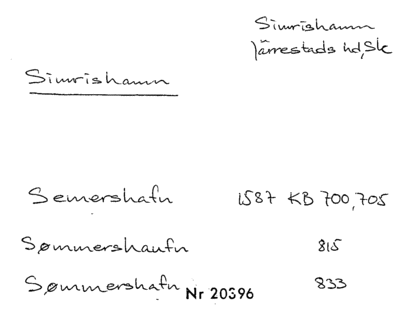 Simrishamn
Järrestads hd, Sk
Simrishamn
Semershafn 1587 KB 700, 705
Sømmershaufn 815
Sømmershafn 833
Nr 20396